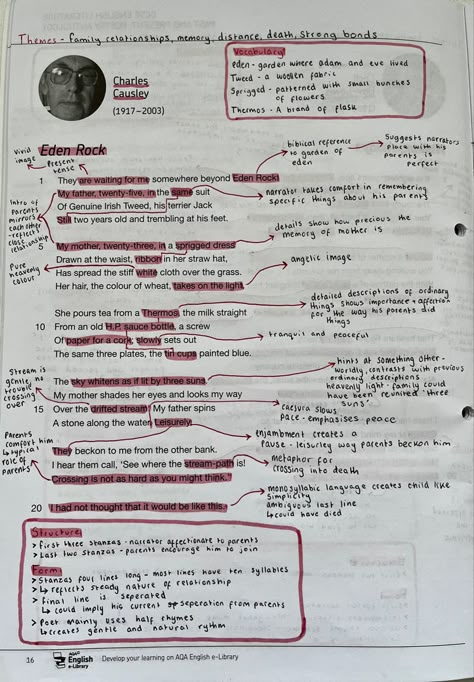 GCSE ENGLISH LITERATURE
Themes - family relationships, memory, distance, death, strong bonds
Charles
Causley
(1917–2003)
Vocabulary
eden - garden where adam and eve lived
Tweed - a woollen fabric
Sprigged - patterned with small bunches
of flowers
Thermos - A brand of flask
Vivid
image
Eden Rock
Present
tense
biblical reference
to garden of
eden
Suggests narrators
place with his
parents is
perfect
1 They are waiting for me somewhere beyond Eden Rock:
My father, twenty-five, in the same suit
Of Genuine Irish Tweed, his terrier Jack
Still two years old and trembling at his feet.
narrator takes comfort in remembering
specific things about his parents
Intro of
Parents
mirrors
each other
-reflects
close
relationship
5 My mother, twenty-three, in a sprigged dress
Drawn at the waist, ribbon in her straw hat,
Has spread the stiff white cloth over the grass.
Her hair, the colour of wheat, takes on the light.
details show how precious the
memory of mother is
Pure
heavenly
colour
angelic image
She pours tea from a Thermos, the milk straight
10 From an old H.P. sauce bottle, a screw
Of paper for a cork; slowly sets out
The same three plates, the tin cups painted blue.
detailed descriptions of ordinary
things shows importance + affection
for the way his parents did
things
tranquil and peaceful
Stream is
genle, no
trouble
crossing
over
The sky whitens as if lit by three suns.
My mother shades her eyes and looks my way
15 Over the drifted stream. My father spins
A stone along the water. Leisurely,
hints at something other-
worldly, contrasts with previous
ordinary descriptions
heavenly light - family could
have been reunited 'three
suns'
caesura slows
pace - emphasises peace
Parents
comfort him
↳ typical
role of
parents
They beckon to me from the other bank.
I hear them call, 'See where the stream-path is!
Crossing is not as hard as you might think.'
enjambment creates a
pause - leisurley way parents beckon him
metaphor for
crossing into death
20 I had not thought that it would be like this.
monosyllabic language creates child like
simplicity
ambiguous last line
↳ could have died
Structure
> first three stanzas - narrator affectionate to parents
> Last two stanzas - parents encourage him to join
Form
> Stanzas four lines long - most lines have ten syllables
> ↳ reflects steady nature of relationship
> final line is seperated
↳ could imply his current seperation from parents
> Poet mainly uses half rhymes
↳ creates gentle and natural rythm
16 AQA English e-Library Develop your learning on AQA English e-Library